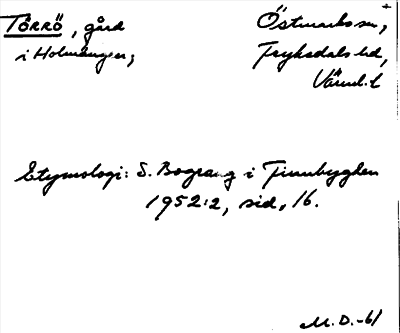 TÖRRÖ, gård
i Holmängen;
Östmarks sn,
Fryksdals hd,
Värml. l
Etymologi: S. Bograng i Finnbygden
1952:2, sid, 16.
M. D. -61